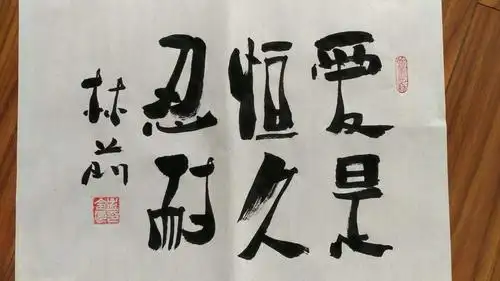 爱是
恒久
忍耐
林前